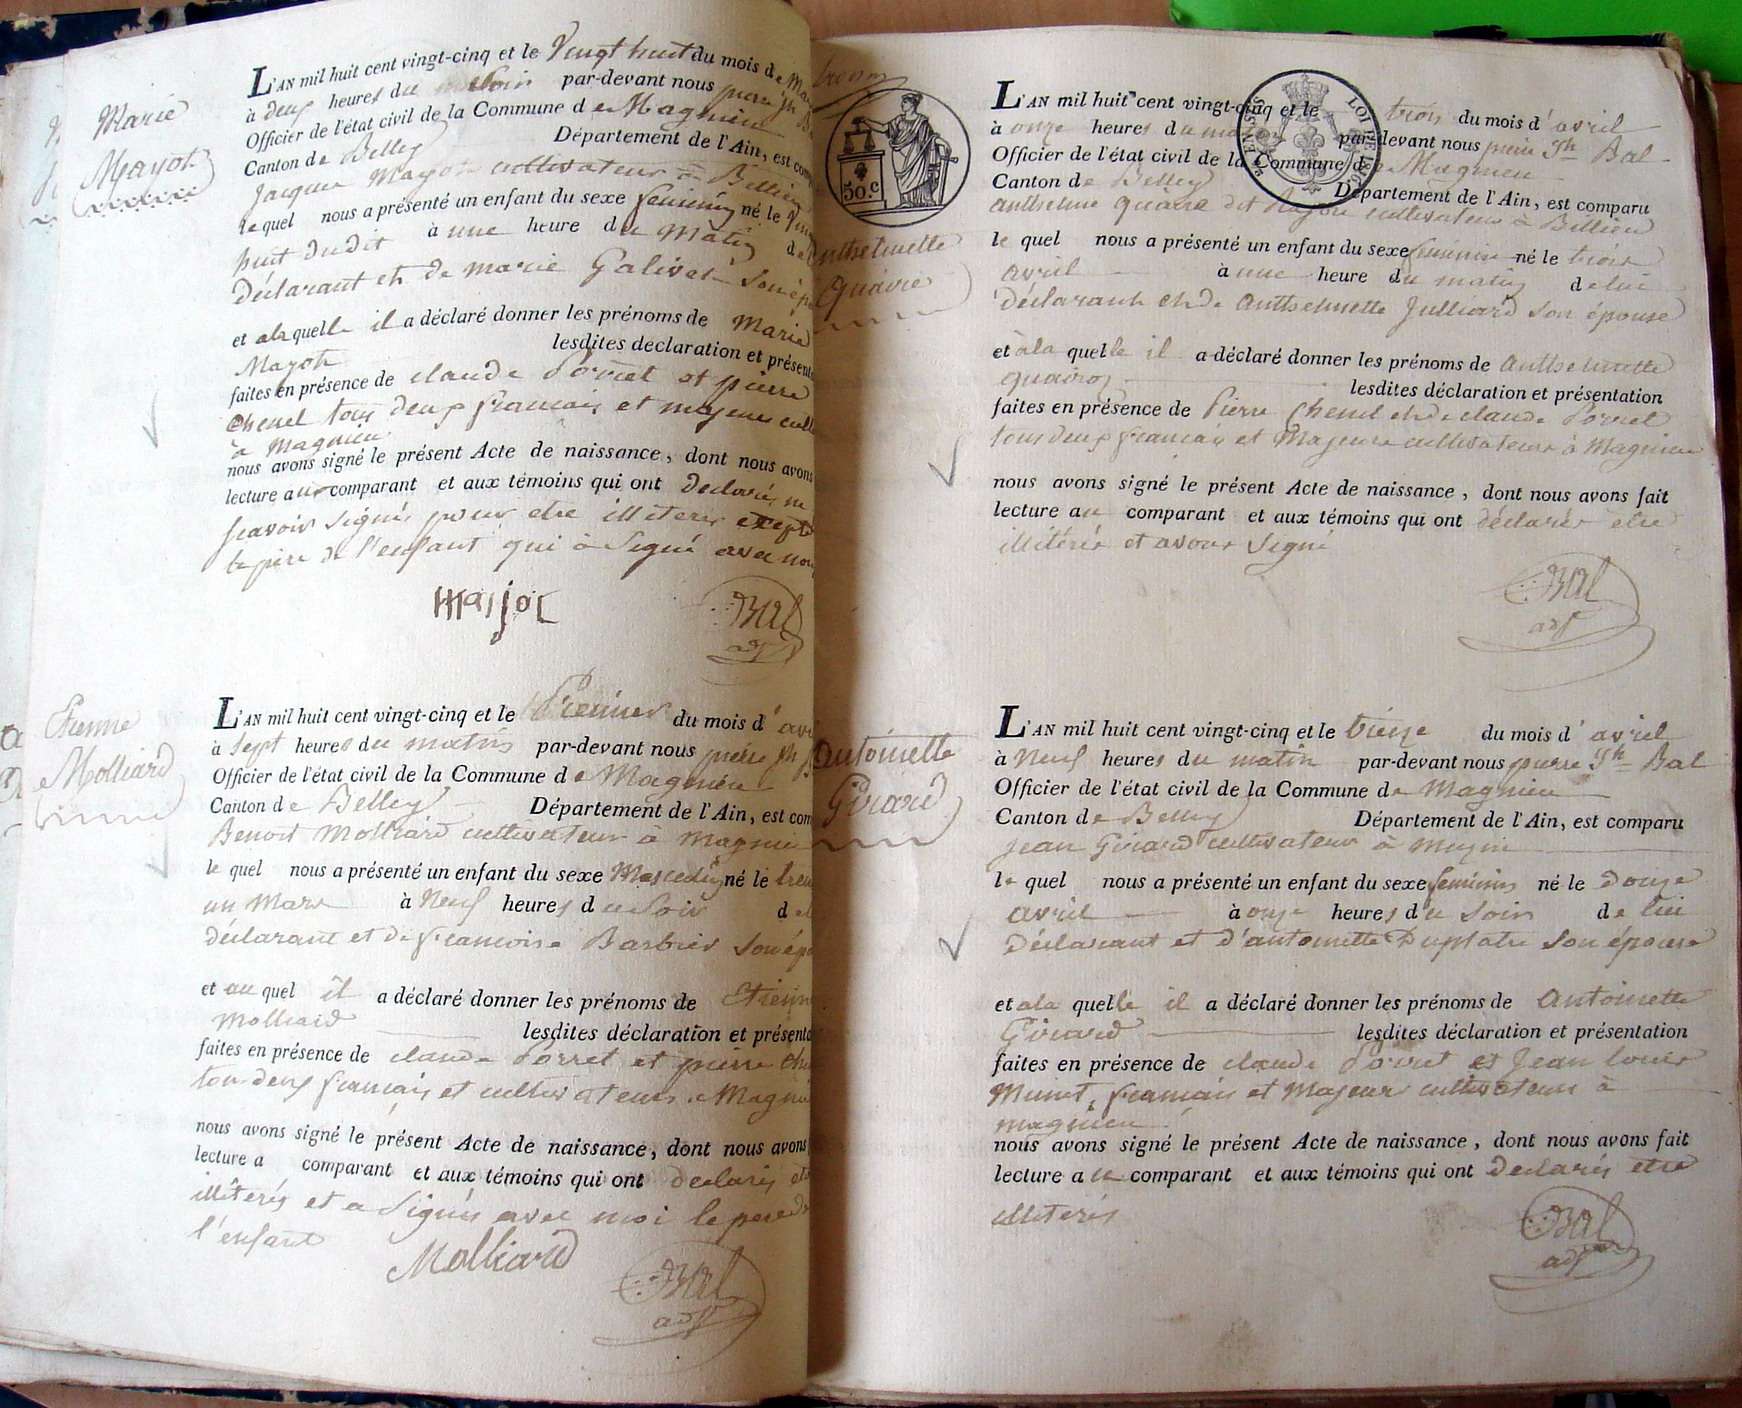 Marie
Mayot
L'AN mil huit cent vingt-cinq et le Vingt huit du mois de
à deux heures du par-devant nous pierre jh
Officier de l'état civil de la Commune de Magnieu
Canton de Belley Département de l'Ain, est
Jacques Mayot cultivateur à Billieu
le quel nous a présenté un enfant du sexe féminin né le
huit dudit à une heure du matin
déclarant et de marie Galivet Son
et ala quelle il a déclaré donner les prénoms de Marie
Mayot lesdites declaration et
faites en présence de claude Porret et pierre
Chenel tous deux francais et majeurs
à Magnieu
nous avons signé le présent Acte de naissance, dont nous avons
lecture au comparant et aux témoins qui ont declarés ne
scavoir signés pour etre illiteres excepté
le père de l'enfant qui à Signé avec nous
Mayot
Bal
adj
Etienne
Molliard
L'AN mil huit cent vingt-cinq et le Premier du mois d'
à Sept heures du matin par-devant nous pierre jh
Officier de l'état civil de la Commune de Magnieu
Canton de Belley Département de l'Ain, est
Benoit Molliard cultivateur à Magnieu
le quel nous a présenté un enfant du sexe Masculin né le
un Mars à Neuf heures du Soir
déclarant et de francoise Barbier Son
et au quel il a déclaré donner les prénoms de
Molliard lesdites déclaration et
faites en présence de claude Porret et pierre
tous deux francais et cultivateurs a
nous avons signé le présent Acte de naissance, dont nous avons
lecture a comparant et aux témoins qui ont declarés
illiterés et a Signés avec moi le pere de
l'enfant
Molliard
Bal
adj
50 c
LOI DE
Anthelmette
Quaire
L'AN mil huit cent vingt-cinq et le trois du mois d'avril
à onze heures du matin par-devant nous pierre Jh Bal
Officier de l'état civil de la Commune de Magnieu
Canton de Belley Département de l'Ain, est comparu
anthelme quaire dit cultivateur à Billieu
le quel nous a présenté un enfant du sexe féminin né le trois
avril à une heure du matin de lui
déclarant et de Anthelmette Julliard son épouse
et à la quelle il a déclaré donner les prénoms de Anthelmette
lesdites déclaration et présentation
faites en présence de Pierre Chenel et de claude Porret
tous deux francais et Majeurs cultivateurs à Magnieu
nous avons signé le présent Acte de naissance, dont nous avons fait
lecture au comparant et aux témoins qui ont déclarés etre
illitérés et avons Signé
Bal
adj
Antoinette
Girard
L'AN mil huit cent vingt-cinq et le treize du mois d'avril
à Neuf heures du matin par-devant nous pierre Jh Bal
Officier de l'état civil de la Commune de Magnieu
Canton de Belley Département de l'Ain, est comparu
Jean Girard cultivateur à
le quel nous a présenté un enfant du sexe féminin né le Douze
avril à onze heures du Soir de lui
Déclarant et d'antoinette Duplatre Son épouse
et ala quelle il a déclaré donner les prénoms de Antoinette
Girard lesdites déclaration et présentation
faites en présence de claude Porret et Jean Louis
Munet, francais et Majeur cultivateurs à
magnieu
nous avons signé le présent Acte de naissance, dont nous avons fait
lecture au comparant et aux témoins qui ont declarés etre
illiterés
Bal
adj